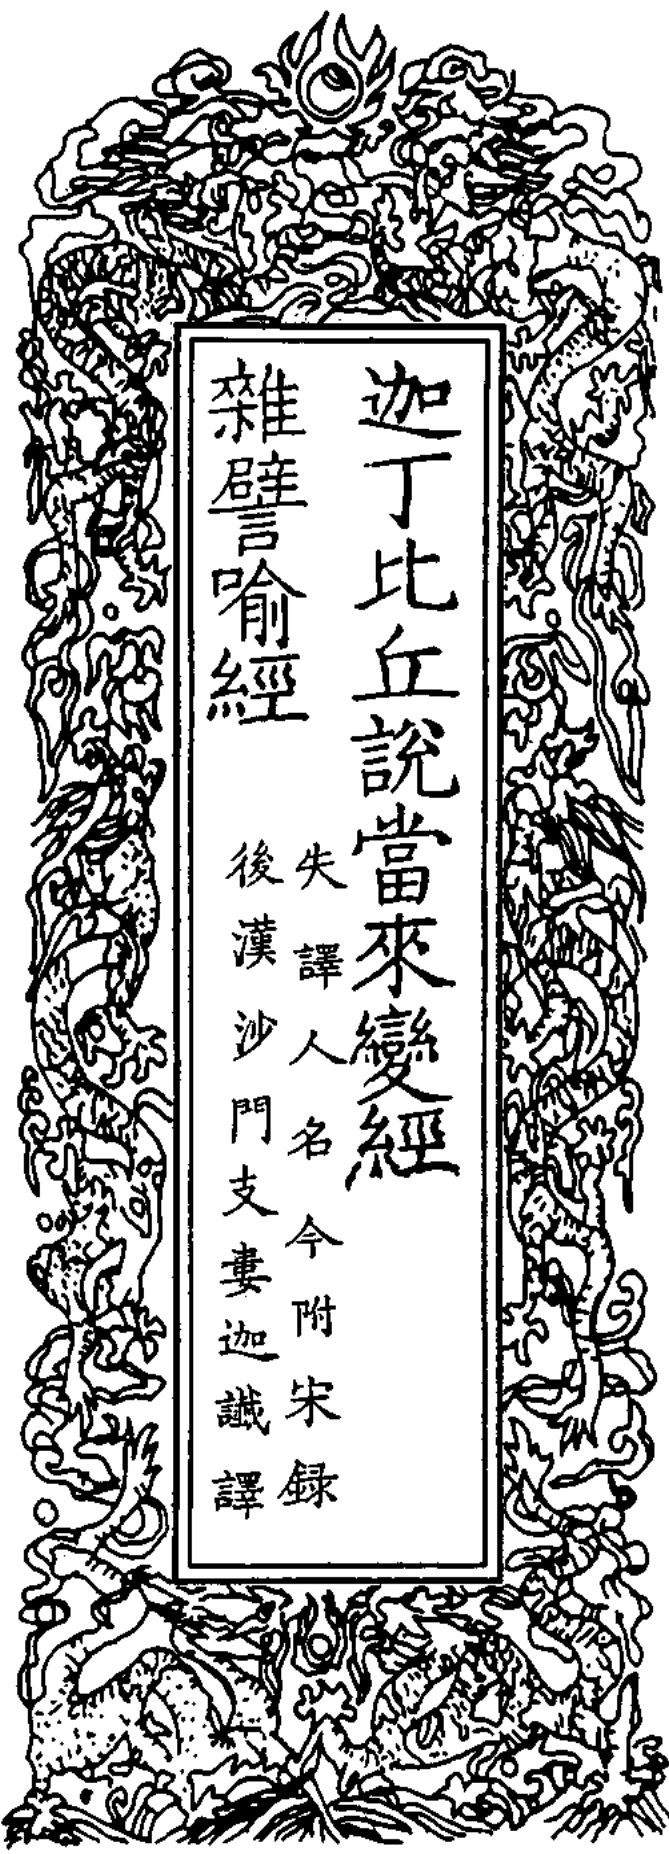 迦丁比丘說當來變經
失譯人名今附宋録
雜譬喻經
後漢沙門支婁迦讖譯